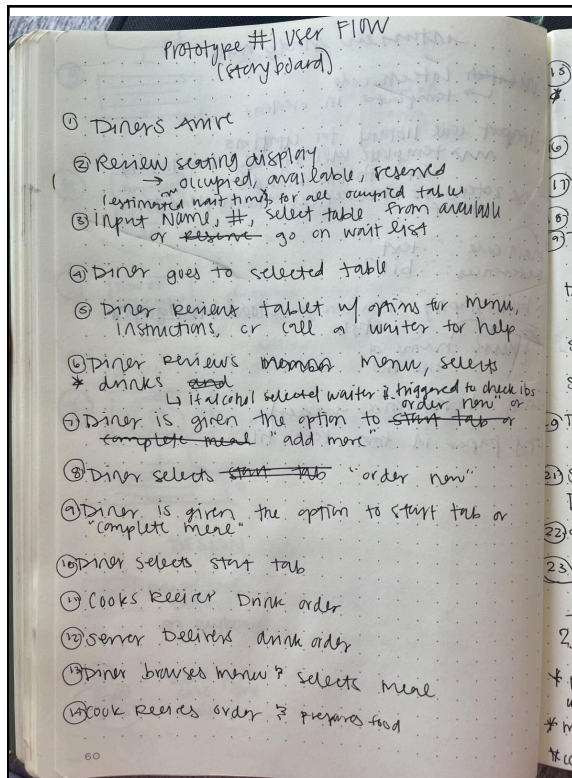 Prototype #1 User Flow
(storyboard)
① Diners Arrive
② Review seating display
→ occupied, available, reserved
(estimated wait times) for all occupied tables
③ Input Name, #, select table from available
or reserve go on wait list
④ Diner goes to selected table
⑤ Diner Reviews tablet w/ options for menu,
instructions, or call a waiter for help
⑥ Diner Reviews Menu, selects
* drinks and
↳ if alcohol selected waiter is triggered to check ids
"order now" or
⑦ Diner is given the option to start tab or
complete meal "add more"
⑧ Diner selects start tab "order now"
⑨ Diner is given the option to start tab or
"complete meal"
⑩ Diner selects start tab
⑪ Cooks Receive Drink order
⑫ Server Delivers drink order
⑬ Diner browses menu & selects Meal
⑭ Cook Receives order & prepares food
60